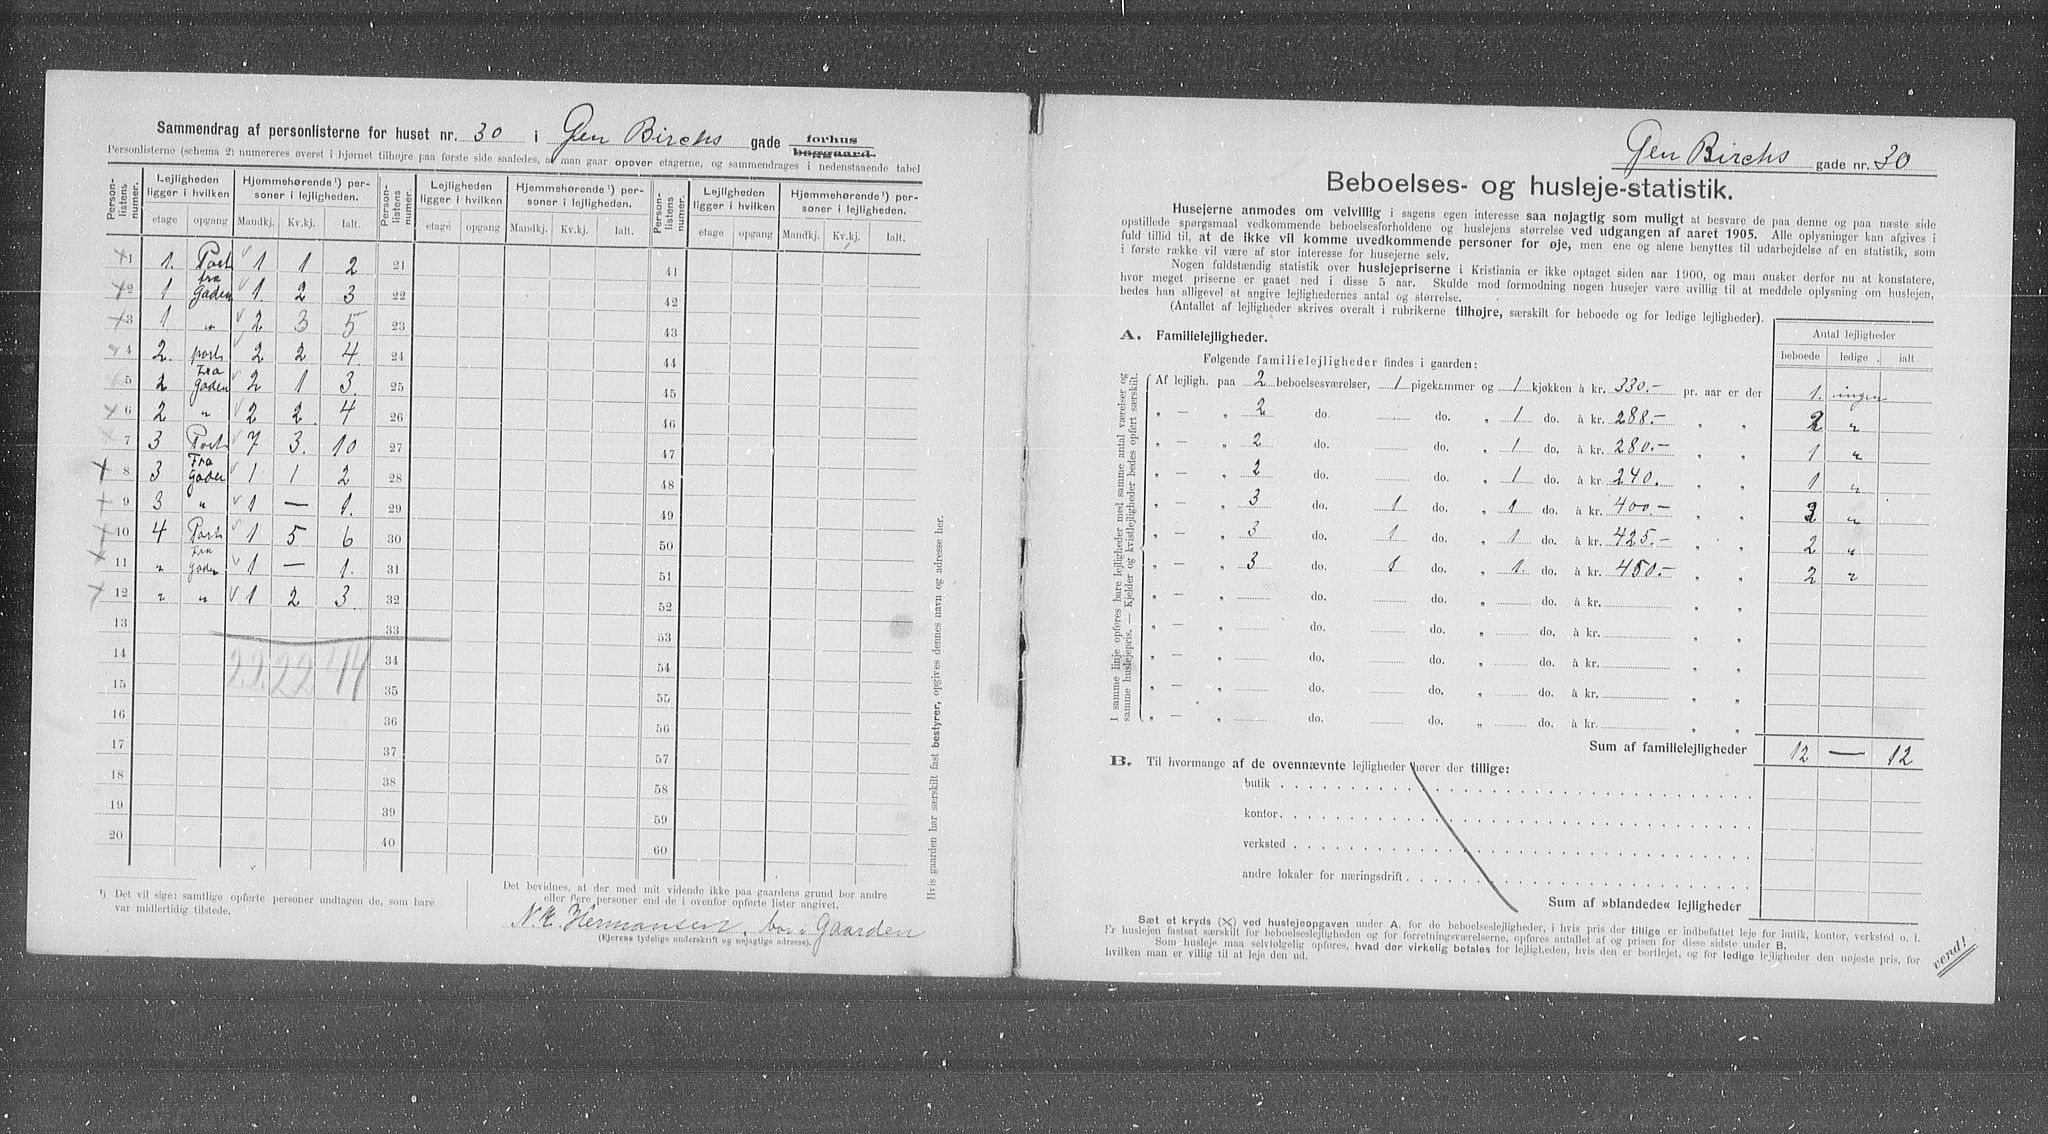 Sammendrag af personlisterne for huset nr. 30 i Gen Birchs gade forhus
baggaard.
Personlisterne (schema 2) numereres øverst i hjørnet tilhøjre paa første side saaledes, at man gaar opover etagerne, og sammendrages i nedenstaaende tabel
Person-listens numer. Lejligheden ligger i hvilken Hjemmehørende¹) personer i lejligheden. Person-listens numer. Lejligheden ligger i hvilken Hjemmehørende¹) personer i lejligheden. Person-listens numer. Lejligheden ligger i hvilken Hjemmehørende¹) personer i lejligheden.
etage opgang Mandkj. Kv.kj. Ialt. etage opgang Mandkj. Kv.kj. Ialt. etage opgang Mandkj. Kv.kj. Ialt.
1 1. Port 1 1 2 21 41
2 1 fra Gaden 1 2 3 22 42
3 1 " 2 3 5 23 43
4 2. port 2 2 4 24 44
5 2 Fra Gaden 2 1 3. 25 45
6 2 " 2 2. 4 26 46
7 3 Port 7 3. 10 27 47
8 3 Fra Gaden 1 1 2 28 48
9 3 " 1 — 1. 29 49
10 4 Port 1 5 6 30 50
11 " Fra Gaden 1 — 1. 31 51
12 " " 1 2 3 32 52
13 33 53
14 22 22 44 34 54
15 35 55
16 36 56
17 37 57
18 38 58
19 39 59
20 40 60
Hvis gaarden har særskilt fast bestyrer, opgives dennes navn og adresse her.
¹) Det vil sige: samtlige opførte personer undtagen de, som bare
var midlertidig tilstede.
Det bevidnes, at der med mit vidende ikke paa gaardens grund bor andre
eller flere personer end de i ovenfor opførte lister angivet.
N K. Hermansen. bor i Gaarden
(Ejerens tydelige underskrift og nøjagtige adresse).
Gen Birchs gade nr. 30
Beboelses- og husleje-statistik.
Husejerne anmodes om velvillig i sagens egen interesse saa nøjagtig som muligt at besvare de paa denne og paa næste side
opstillede spørgsmaal vedkommende beboelsesforholdene og huslejens størrelse ved udgangen af aaret 1905. Alle oplysninger kan afgives i
fuld tillid til, at de ikke vil komme uvedkommende personer for øje, men ene og alene benyttes til udarbejdelse af en statistik, som
i første række vil være af stor interesse for husejerne selv.
Nogen fuldstændig statistik over huslejepriserne i Kristiania er ikke optaget siden aar 1900, og man ønsker derfor nu at konstatere,
hvor meget priserne er gaaet ned i disse 5 aar. Skulde mod formodning nogen husejer være uvillig til at meddele oplysning om huslejen,
bedes han alligevel at angive lejlighedernes antal og størrelse.
(Antallet af lejligheder skrives overalt i rubrikerne tilhøjre, særskilt for beboede og for ledige lejligheder).
A. Familielejligheder.
Antal lejligheder
Følgende familielejligheder findes i gaarden:
beboede ledige. ialt
I samme linje opføres bare lejligheder med samme antal værelser og
samme huslejepris. — Kjelder og kvistlejligheder bedes opført særskilt.
Af lejligh. paa 2 beboelsesværelser, 1 pigekammer og 1 kjøkken à kr. 330.- pr. aar er der 1. ingen
" — " 2 do. do. " 1 do. à kr. 288.- " " 2 "
" — " 2 do. do. " 1 do. à kr. 280.- " " 1 "
" — " 2 do. do. " 1 do. à kr. 240. " " 1 "
" — " 3 do. 1 do. " 1 do. à kr. 400.- " " 3 "
" — " 3 do. 1 do. " 1 do. à kr. 425.- " " 2 "
" — " 3 do. 1 do. " 1. do. à kr. 450.- " " 2 "
" — " do. do. " do. à kr. " "
" — " do. do. " do. à kr. " "
" — " do. do. " do. à kr. " "
" — " do. do. " do. à kr. " "
" — " do. do. " do. à kr. " "
Sum af familielejligheder 12 — 12
B. Til hvormange af de ovennævnte lejligheder hører der tillige:
butik
kontor.
verksted
andre lokaler for næringsdrift
Sum af »blandede« lejligheder
Sæt et kryds (×) ved huslejeopgaven under A. for de beboelseslejligheder, i hvis pris der tillige er indbefattet leje for butik, kontor, verksted o. l.
Er huslejen fastsat særskilt for beboelseslejligheden og for forretningsværelserne, opføres antallet af og prisen for disse sidste under B.
Som husleje maa selvfølgelig opføres, hvad der virkelig betales for lejligheden, hvis den er bortlejet, og for ledige lejligheder den nøjeste pris, for
hvilken man er villig til at leje den ud.
vend!